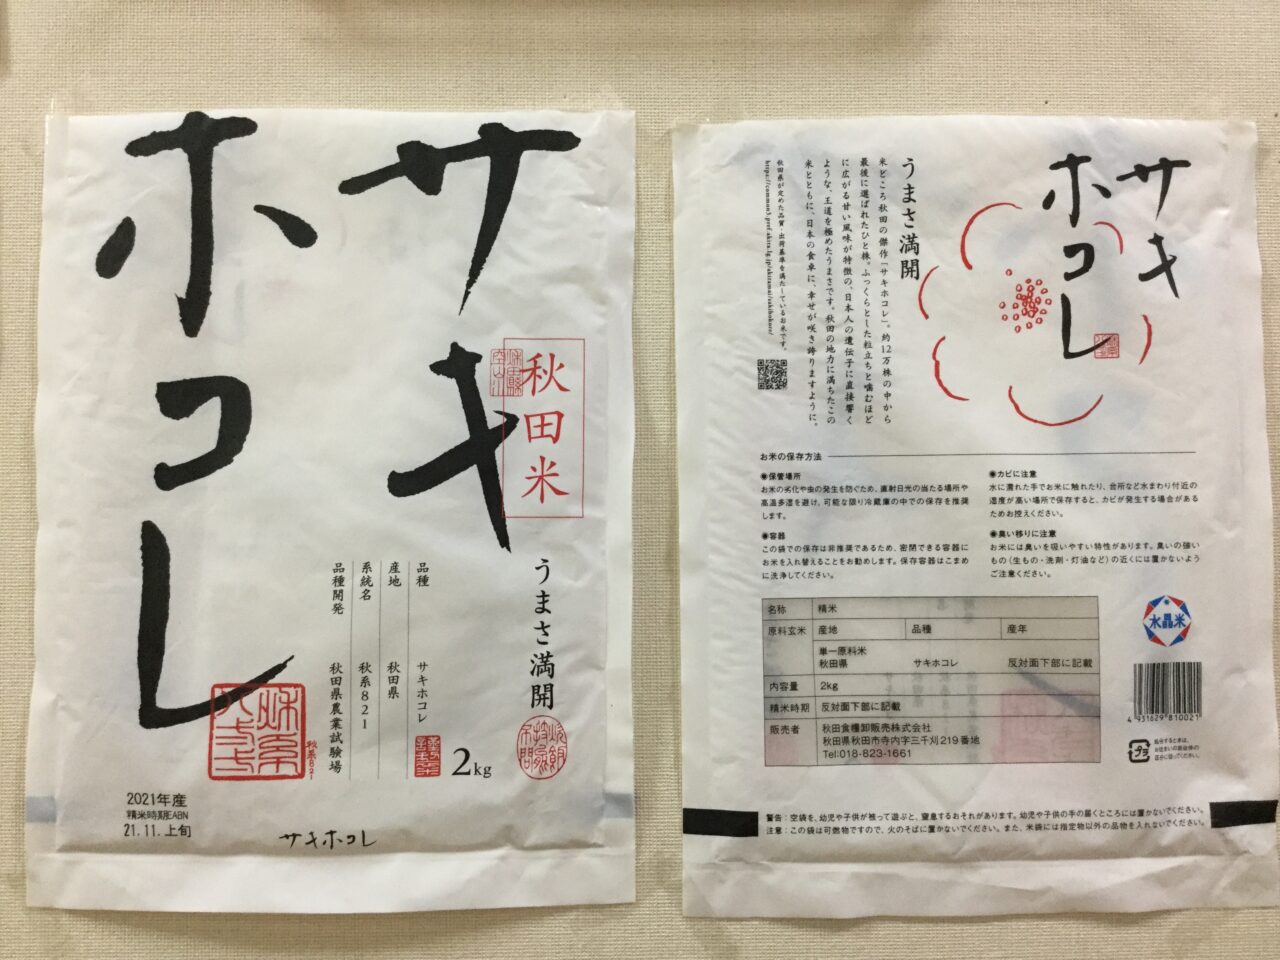 サキ
ホコレ
秋田米
うまさ満開
品種 サキホコレ
産地 秋田県
系統名 秋系821
品種開発 秋田県農業試験場
2kg
秋系821
2021年産
精米時期EABN
21.11.上旬
サキホコレ
サキ
ホコレ
うまさ満開
米どころ秋田の傑作「サキホコレ」。約12万株の中から
最後に選ばれたひと株。ふっくらとした粒立ちと噛むほど
に広がる甘い風味が特徴の、日本人の遺伝子に直接響く
ような、王道を極めたうまさです。秋田の地力に満ちたこの
米とともに、日本の食卓に、幸せが咲き誇りますように。
秋田県が定めた品質・出荷基準を満たしているお米です。
お米の保存方法
◉保管場所
お米の劣化や虫の発生を防ぐため、直射日光の当たる場所や
高温多湿を避け、可能な限り冷蔵庫の中での保存を推奨
します。
◉容器
この袋での保存は非推奨であるため、密閉できる容器に
お米を入れ替えることをお勧めします。保存容器はこまめ
に洗浄してください。
◉カビに注意
水に濡れた手でお米に触れたり、台所など水まわり付近の
湿度が高い場所で保存すると、カビが発生する場合がある
ためお控えください。
◉臭い移りに注意
お米には臭いを吸いやすい特性があります。臭いの強い
もの(生もの・洗剤・灯油など)の近くには置かないよう
ご注意ください。
名称 精米
原料玄米 産地 品種 産年
単一原料米
秋田県 サキホコレ 反対面下部に記載
内容量 2kg
精米時期 反対面下部に記載
販売者 秋田食糧卸販売株式会社
秋田県秋田市寺内字三千刈219番地
Tel:018-823-1661
水晶米
4 931629 810021
プラ
警告: 空袋を、幼児や子供が被って遊ぶと、窒息するおそれがあります。幼児や子供の手の届くところには置かないでください。
注意: この袋は可燃物ですので、火のそばに置かないでください。また、米袋には指定物以外の品物を入れないでください。